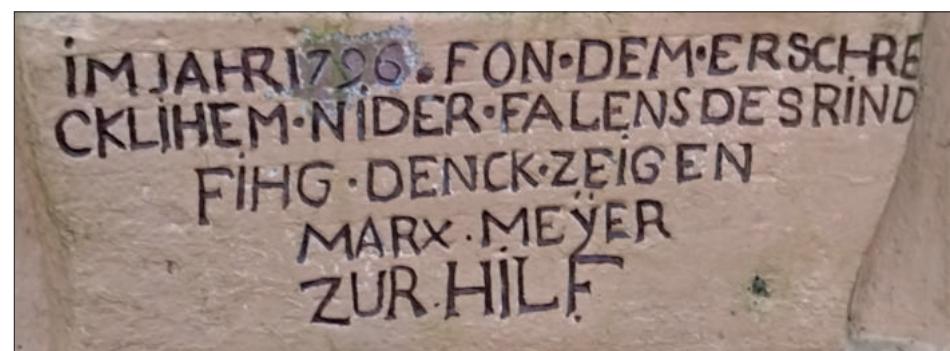 iM JAHR 1796. FON·DEM·ERSCHRE
CKLiHEM·NiDER·FALENS DES RiND
FiHG·DENCK·ZEiGEN
MARX·MEŸER
ZUR·HiLF